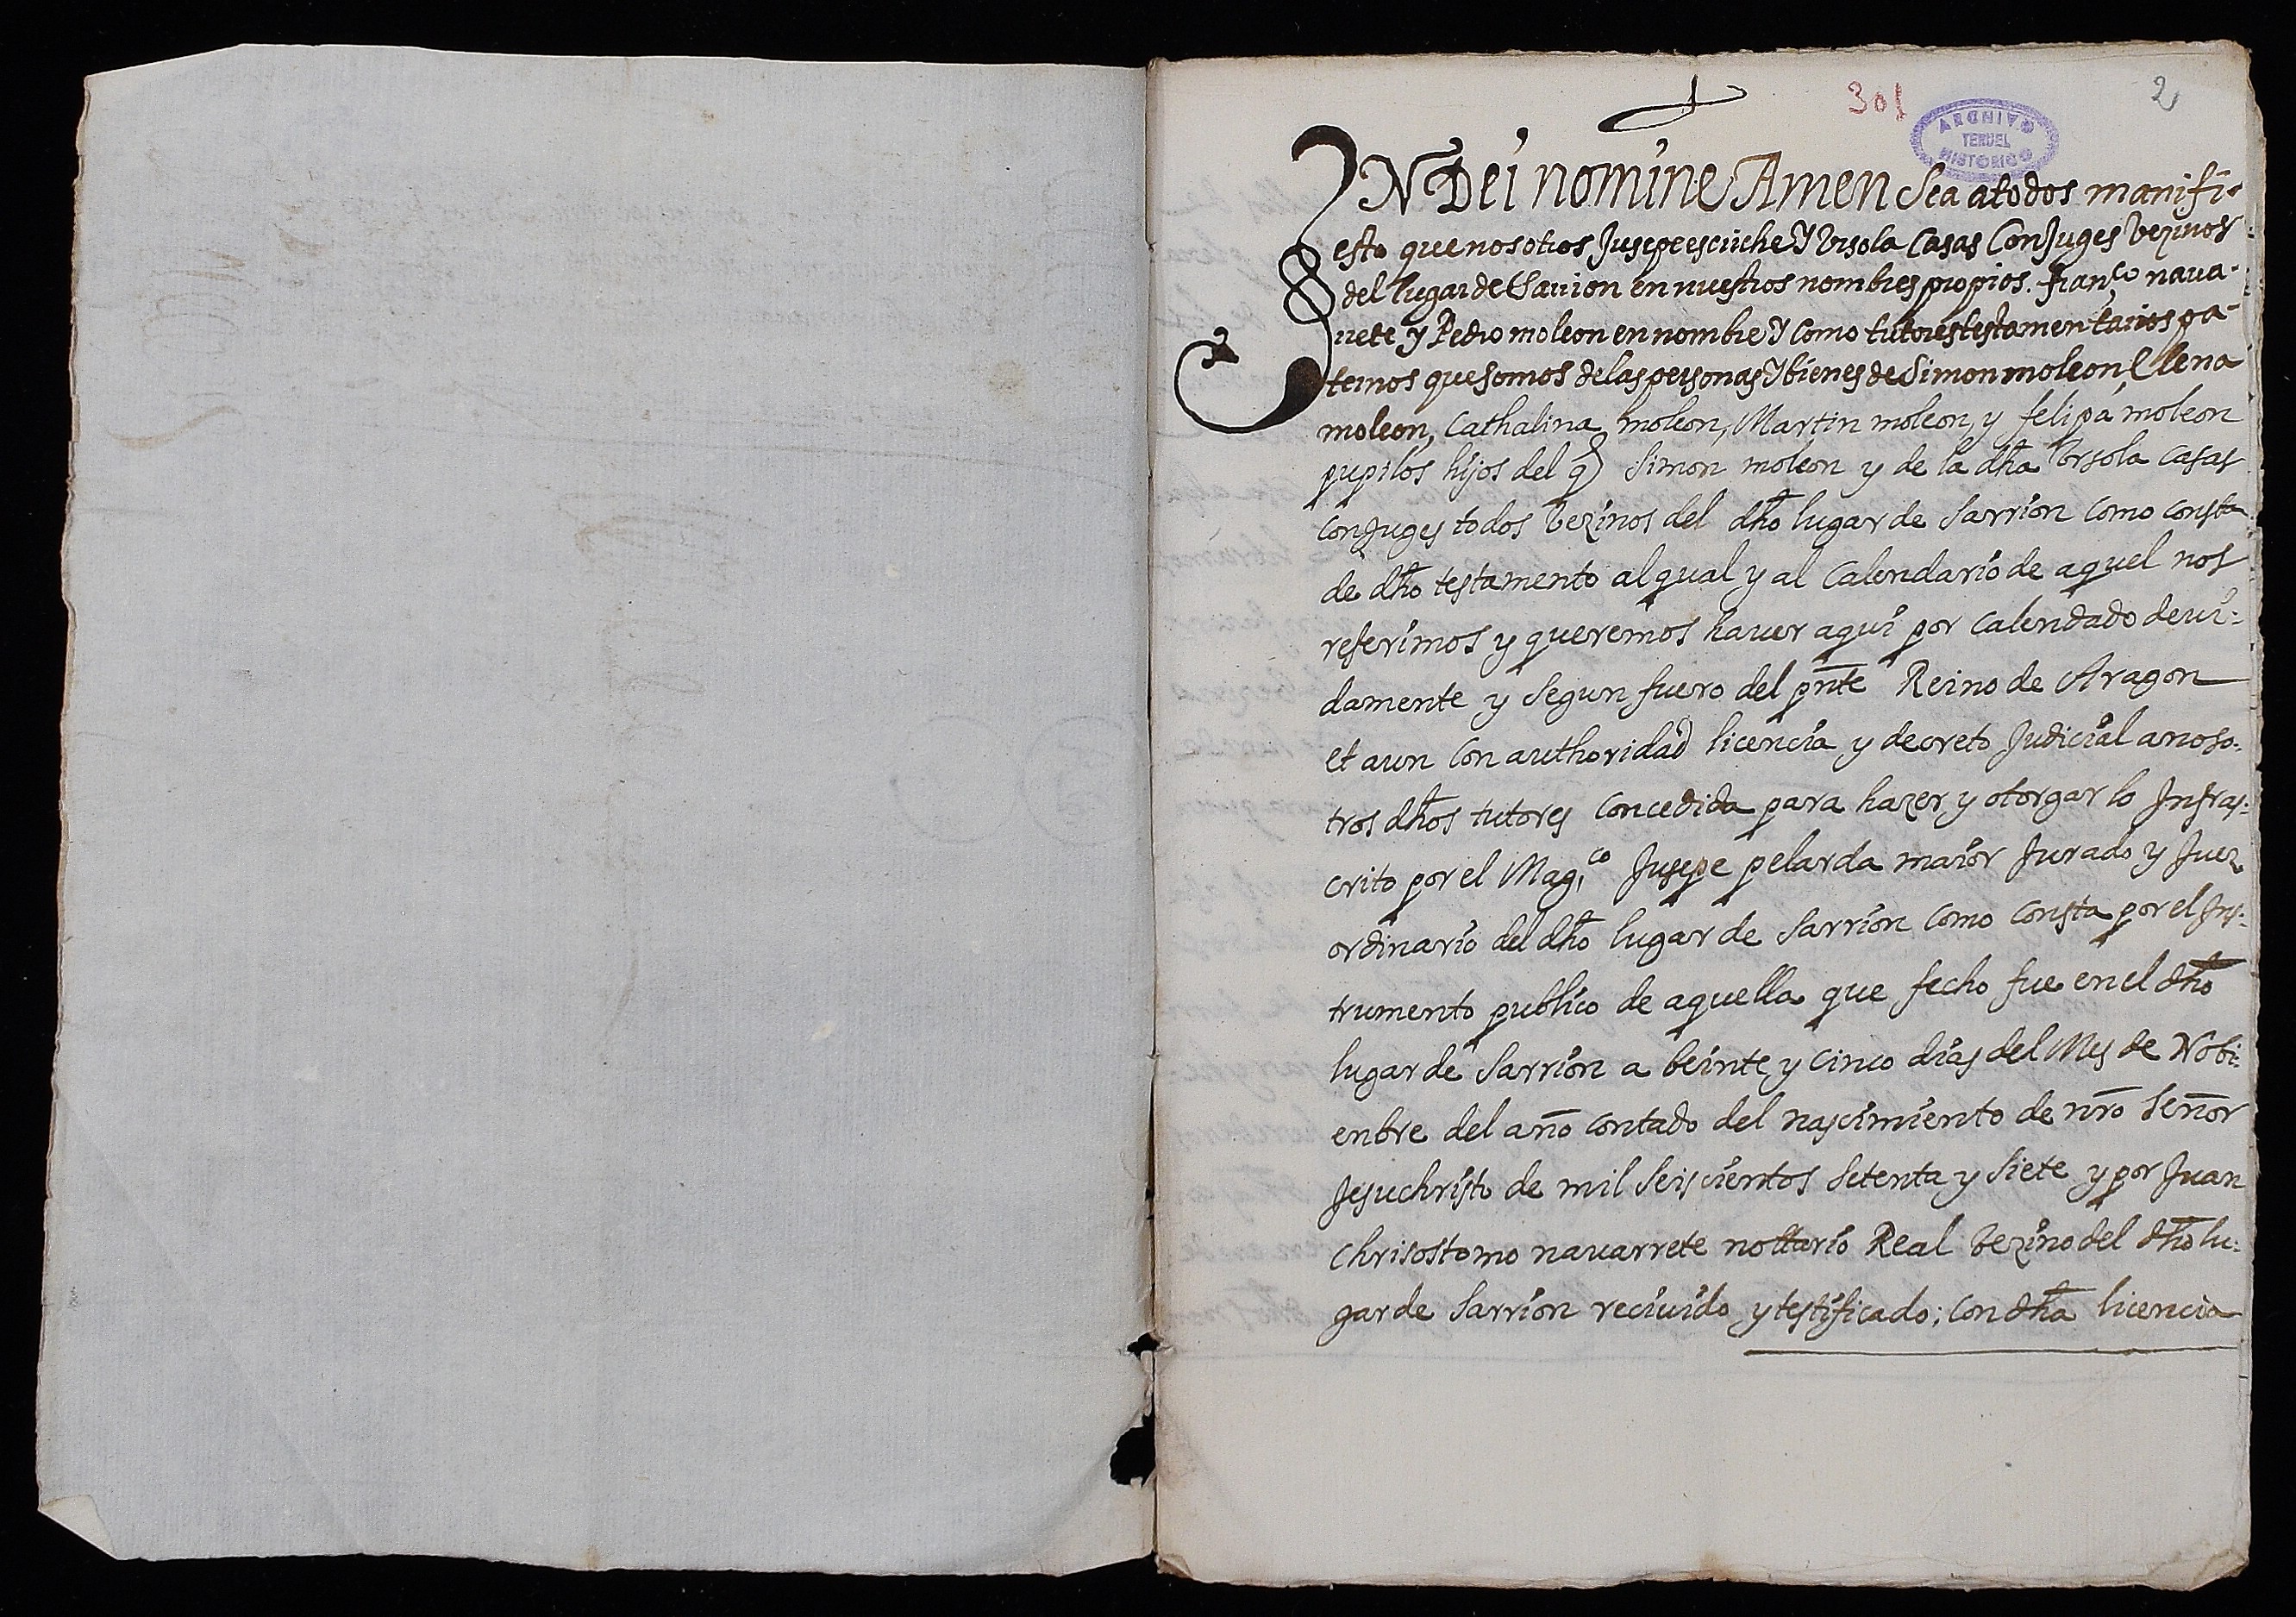 301
2
ARCHIVO
TERUEL
HISTORICO
IN Dei nomine Amen Sea atodos manifi-
esto que nosotros Jusepe escriche Y Vrsola Casas Conjuges Vezinos
del lugar de Sarrion en nuestros nombres propios. franco naua-
rrete y Pedro moleon en nombre Y como tutores testamentarios pa-
ternos que somos de las personas Y bienes de Simon moleon, Elena
moleon, Cathalina moleon, Martin moleon, y felipa moleon
pupilos hijos del q Simon moleon y de la dha Vrsola Casas
Conjuges todos Vezinos del dho lugar de Sarrion Como Consta
de dho testamento al qual y al Calendario de aquel nos
referimos y queremos hauer aqui por Calendado deui-
damente y Segun fuero del pnte Reino de Aragon
et aun Con authoridad licencia y decreto Judicial a noso-
tros dhos tutores Concedida para hazer y otorgar lo Infras-
crito por el Mag.co Jusepe pelarda maior Jurado y Juez
ordinario del dho lugar de Sarrion Como Consta por el Ins-
trumento publico de aquella que fecho fue en el dho
lugar de Sarrion a beinte y Cinco dias del Mes de Nobi-
enbre del año Contado del nascimiento de nro Señor
Jesuchristo de mil Seiscientos Setenta y Siete y por Juan
Chrisostomo nauarrete nottario Real Vezino del dho lu-
gar de Sarrion reciuido y testificado; Con dha licencia